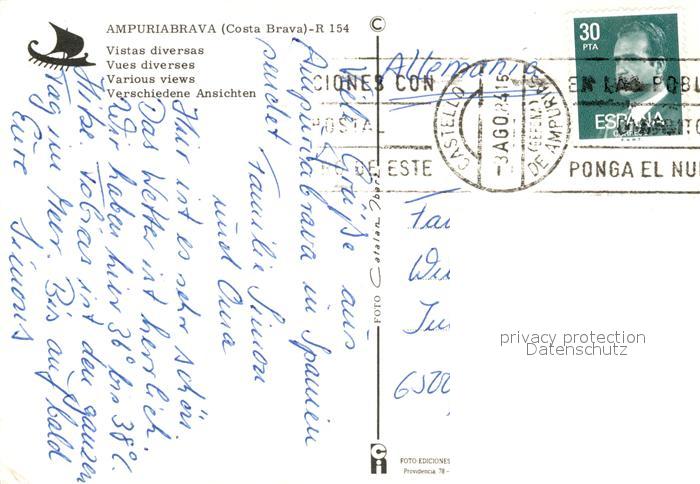 AMPURIABRAVA (Costa Brava)-R 154
Vistas diversas
Vues diverses
Various views
Verschiedene Ansichten
Viele Grüße aus
Ampuriabrava in Spanien
sendet Familie Simon
und Oma
Hier ist es sehr schön
Das Wetter ist herrlich.
Wir haben hier 36° bis 38°C.
Hitze. Tobias ist den ganzen
Tag im Meer. Bis auf bald
Eure Simons
FOTO Catalan
Ci
C
Allemania
CIONES CON
POSTAL
ESTE
CASTELLO DE AMPURIA
-3 AGO 84 16
(GERONA)
EN LAS POBL
PONGA EL NU
30
PTA
ESPAÑA
Fa
Wu
Ju
6500
FOTO-EDICIONES
Providencia, 78
privacy protection
Datenschutz